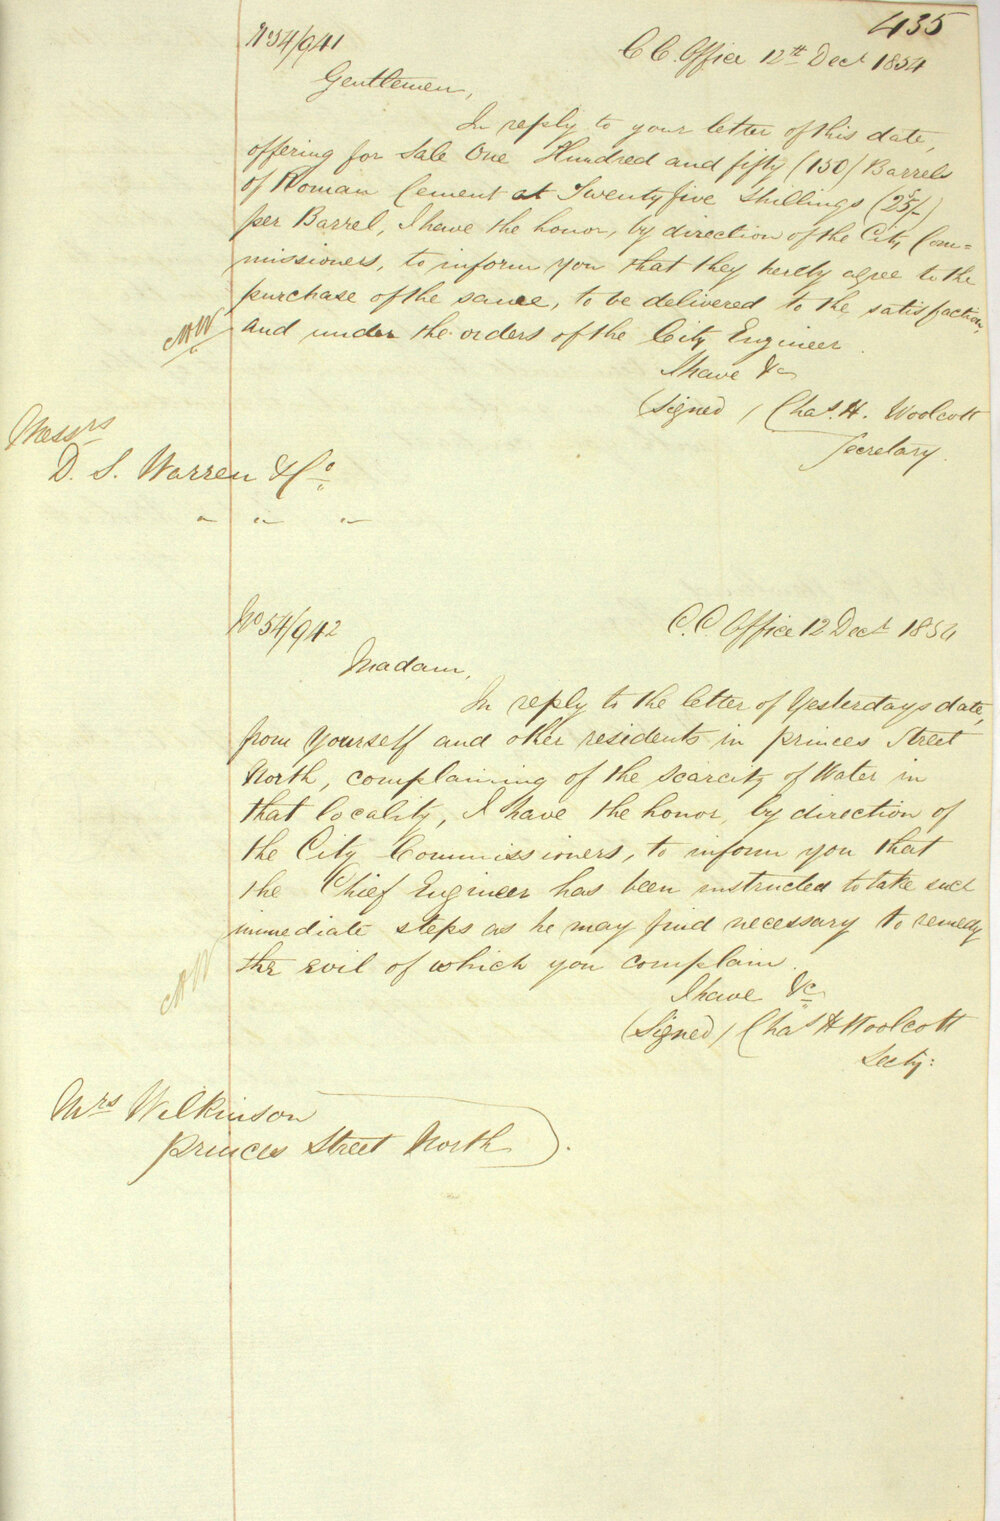 435
No 54/941
C C. Office 12th Decr 1854
Gentlemen,
In reply to your letter of this date,
offering for Sale One Hundred and fifty (150) Barrels
of Roman Cement at Twenty five Shillings (25s/-)
per Barrel, I have the honor, by direction of the City Com=
missioners, to inform you that they hereby agree to the
purchase of the same, to be delivered to the satisfaction,
and under the orders of the City Engineer.
I have &c
(Signed) Chas. H. Woolcott
Secretary.
Messrs
D. S. Warren & Co
No 54/942
C. C Office 12 Decr 1854
Madam,
In reply to the letter of Yesterdays date,
from Yourself and other residents in Princes Street
North, complaining of the scarcity of Water in
that locality, I have the honor, by direction of
the City Commissioners, to inform you that
the Chief Engineer has been instructed to take such
immediate steps as he may find necessary to remedy
the evil of which you complain.
I have &c
(Signed) Chas H Woolcott
Secty:
Mrs Wilkinson
Princes Street North.